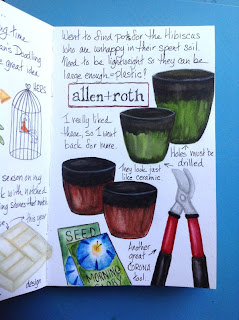 ng time
en's Doodling
great idea.
YEPS
season on my
k with notched
ling stones that
this year
design
Went to find pots for the Hibiscus
who are unhappy in their spent soil.
Need to be lightweight so they can be
large enough - plastic?
allen+roth
I really liked
these, so I went
back for more.
Holes must be
drilled.
They look just
like ceramic.
Another
great
CORONA
tool.
SEED
MORNING